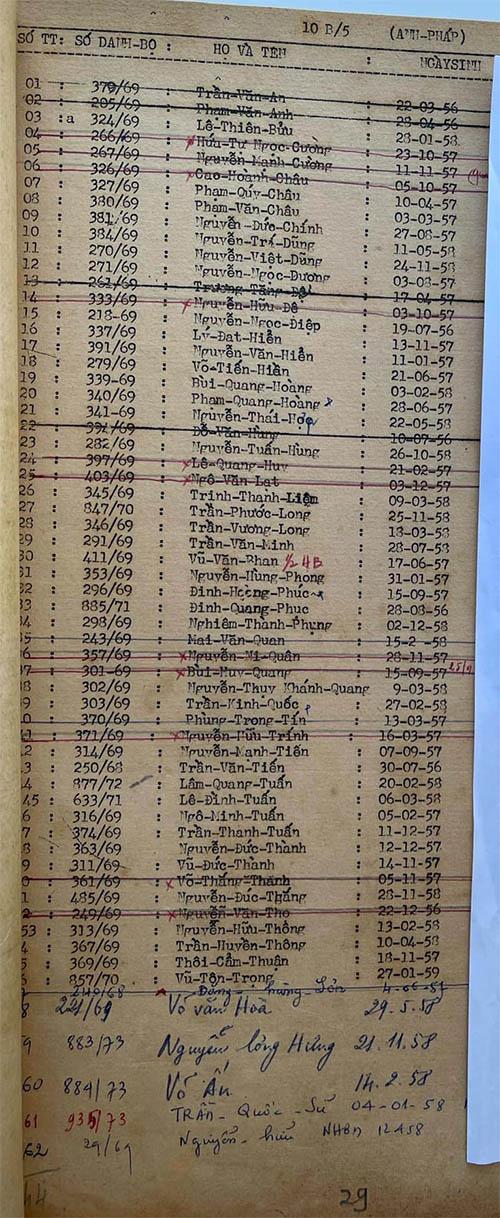 10 B/5 (ANH-PHÁP)
SỐ TT: SỐ DANH-BỘ : HỌ VÀ TÊN : NGAYSINH
01 : 379/69 : Trần-Văn-An : 22-03-56
02 : 205/69 : Phạm-Văn-Anh : 23-04-56
03 :a 324/69 : Lê-Thiên-Bửu : 28-01-58
04 : 266/69 : Hứu-Tư Ngọc-Cường : 23-10-57
05 : 267/69 : Nguyễn-Mạnh-Cường : 11-11-57
06 : 326/69 : Cao-Hoành-Châu : 05-10-57
07 : 327/69 : Phạm-Qúy-Châu : 10-04-57
08 : 380/69 : Phạm-Văn-Châu : 03-03-57
09 : 381/69 : Nguyễn-Đức-Chính : 27-08-57
10 : 384/69 : Nguyễn-Trí-Dũng : 11-05-58
11 : 270/69 : Nguyễn-Viêt-Dũng : 24-11-58
12 : 271/69 : Nguyễn-Ngọc-Dương : 03-08-57
13 : 261/69 : Trương-Tăng-Đệ : 17-04-57
14 : 333/69 : Nguyễn-Hữu-Đê : 03-10-57
15 : 218-69 : Nguyễn-Ngọc-Điệp : 19-07-56
16 : 337/69 : Lý-Đạt-Hiển : 13-11-57
17 : 391/69 : Nguyễn-Văn-Hiển : 11-01-57
18 : 279/69 : Võ-Tiến-Hiền : 21-06-57
19 : 339-69 : Bùi-Quang-Hoàng : 03-02-58
20 : 340/69 : Phạm-Quang-Hoàng : 28-06-57
21 : 341-69 : Nguyễn-Thái-Hoà : 22-05-58
22 : 394/69 : Đỗ-Văn-Hùng : 10-07-56
23 : 282/69 : Nguyễn-Tuấn-Hùng : 26-10-58
24 : 397/69 : Lê-Quang-Huy : 21-02-57
25 : 403/69 : Ngô-Văn-Lạt : 03-12-57
26 : 345/69 : Trinh-Thanh-Liêm : 09-03-58
27 : 847/70 : Trần-Phước-Long : 25-11-58
28 : 346/69 : Trần-Vương-Long : 18-03-58
29 : 291/69 : Trần-Văn-Minh : 28-07-58
30 : 411/69 : Vũ-Văn-Phan ½ 4B : 17-06-57
31 : 353/69 : Nguyễn-Hùng-Phong : 31-01-57
32 : 296/69 : Đinh-Hoàng-Phúc : 15-09-57
33 : 885/71 : Đinh-Quang-Phuc : 28-08-56
34 : 298/69 : Nghiêm-Thanh-Phụng : 02-12-58
35 : 243/69 : Mai-Văn-Quan : 15-2 -58
6 : 357/69 : Nguyễn-Mi-Quân : 28-11-57
37 : 301-69 : Bùi-Huy-Quang : 15-09-57
8 : 302/69 : Nguyễn-Thụy Khánh-Quang : 9-03-58
9 : 303/69 : Trần-Kinh-Quốc : 27-02-58
0 : 370/69 : Phùng-Trọng-Tín : 13-03-57
41 : 371/69 : Nguyễn-Hữu-Trính : 16-03-57
2 : 314/69 : Nguyễn-Mạnh-Tiến : 07-09-57
3 : 250/68 : Trần-Văn-Tiến : 30-07-56
4 : 877/72 : Lâm-Quang-Tuấn : 20-02-58
45 : 633/71 : Lê-Đình-Tuấn : 06-03-58
6 : 316/69 : Ngô-Minh-Tuấn : 05-02-57
7 : 374/69 : Trần-Thanh-Tuấn : 11-12-57
8 : 363/69 : Nguyễn-Đức-Thành : 12-12-57
9 : 311/69 : Vũ-Đức-Thành : 14-11-57
0 : 361/69 : Võ-Thắng-Thành : 05-11-57
1 : 485/69 : Nguyễn-Đức-Thắng : 28-11-58
2 : 249/69 : Nguyễn-Văn-Tho : 22-12-56
53 : 313/69 : Nguyễn-Hữu-Thông : 13-02-58
4 : 367/69 : Trần-Huyền-Thông : 10-04-58
5 : 369/69 : Thôi-Cẩm-Thuận : 18-11-57
6 : 857/70 : Vũ-Tôn-Trọng : 27-01-59
240/68 Đặng
8 221/69 Võ văn Hoà 29.5.58
9 883/73 Nguyễn long Hưng 21.11.58
60 884/73 Võ Ấn 14.2.58
61 935/73 TRẦN - Quốc - Sử 04-01-58
62 29/69 Nguyễn - hữu NHƠN
29